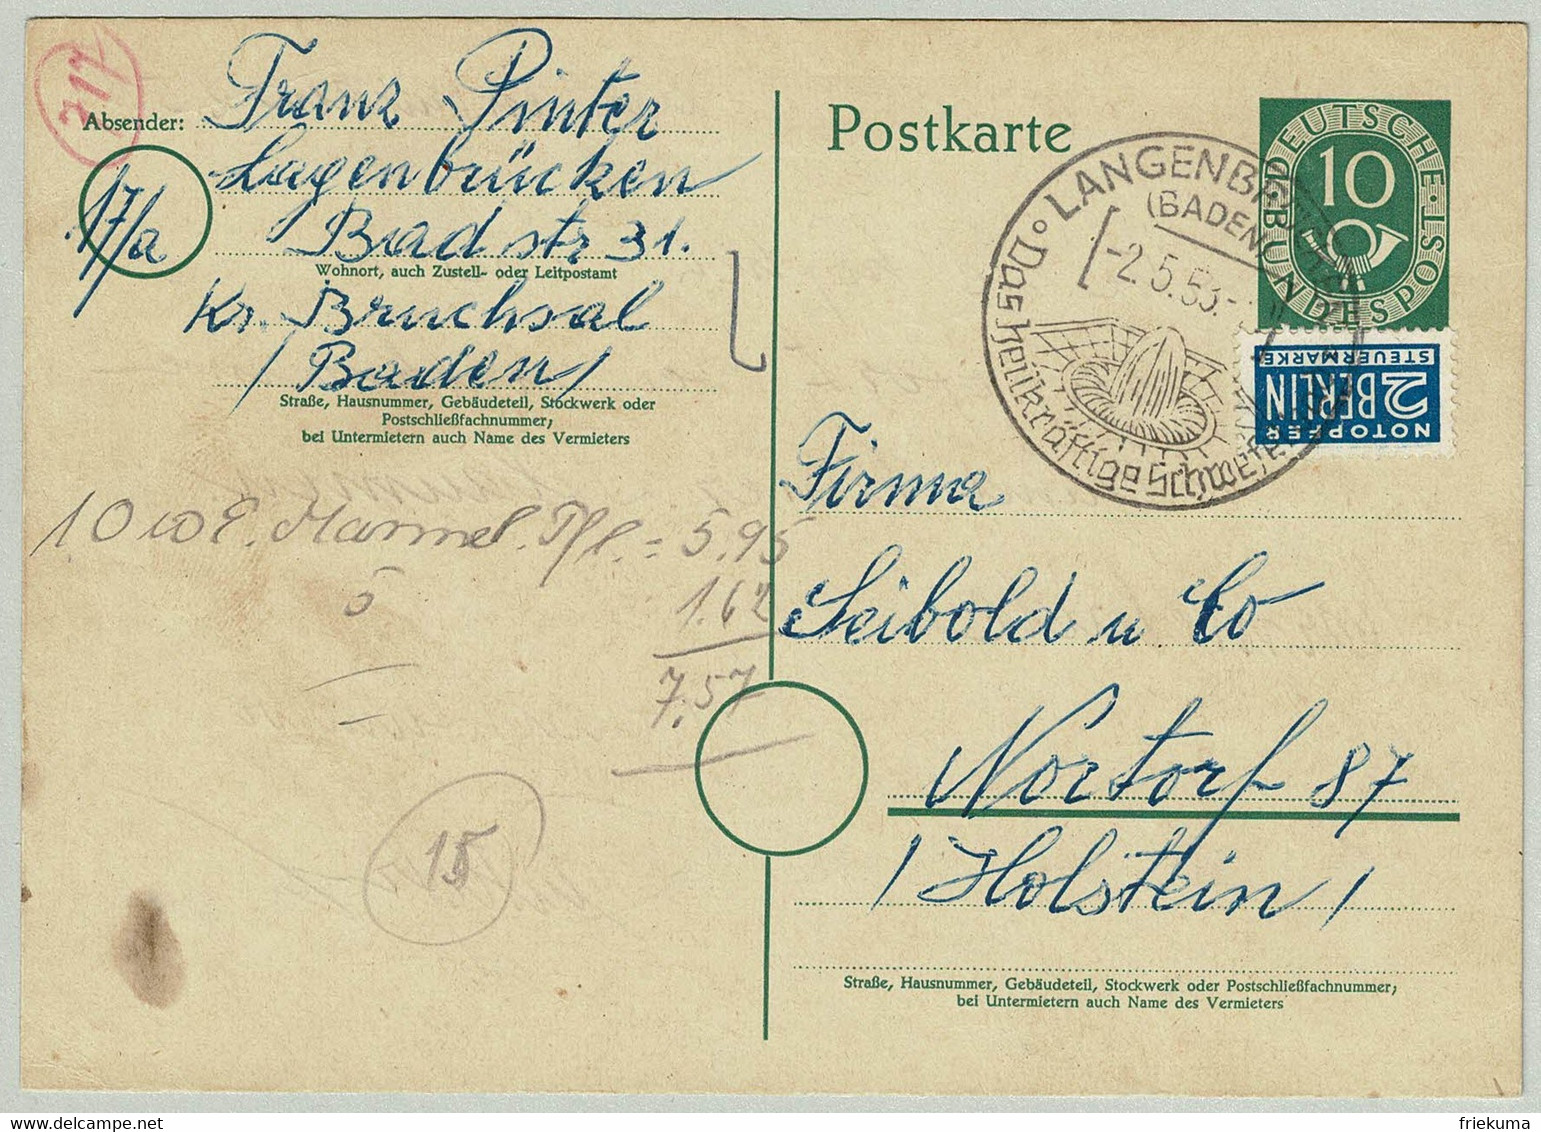 717
Absender: Franz Pinter
Lagenbrücken
17/a
Bad str 31.
Wohnort, auch Zustell- oder Leitpostamt
Kr. Bruchsal
/ Baden /
Straße, Hausnummer, Gebäudeteil, Stockwerk oder
Postschließfachnummer;
bei Untermietern auch Name des Vermieters
5.95
5
1.62
7.57
15
Postkarte
LANGENBR
(BADEN)
-2.5.53-
Das heilkräftige Schwefel
DEUTSCHE BUNDESPOST
10
NOTOPFER
2 BERLIN
STEUERMARKE
Firma
Seibold u Co
Nortorf 87
/ Holstein /
Straße, Hausnummer, Gebäudeteil, Stockwerk oder Postschließfachnummer;
bei Untermietern auch Name des Vermieters
friekuma